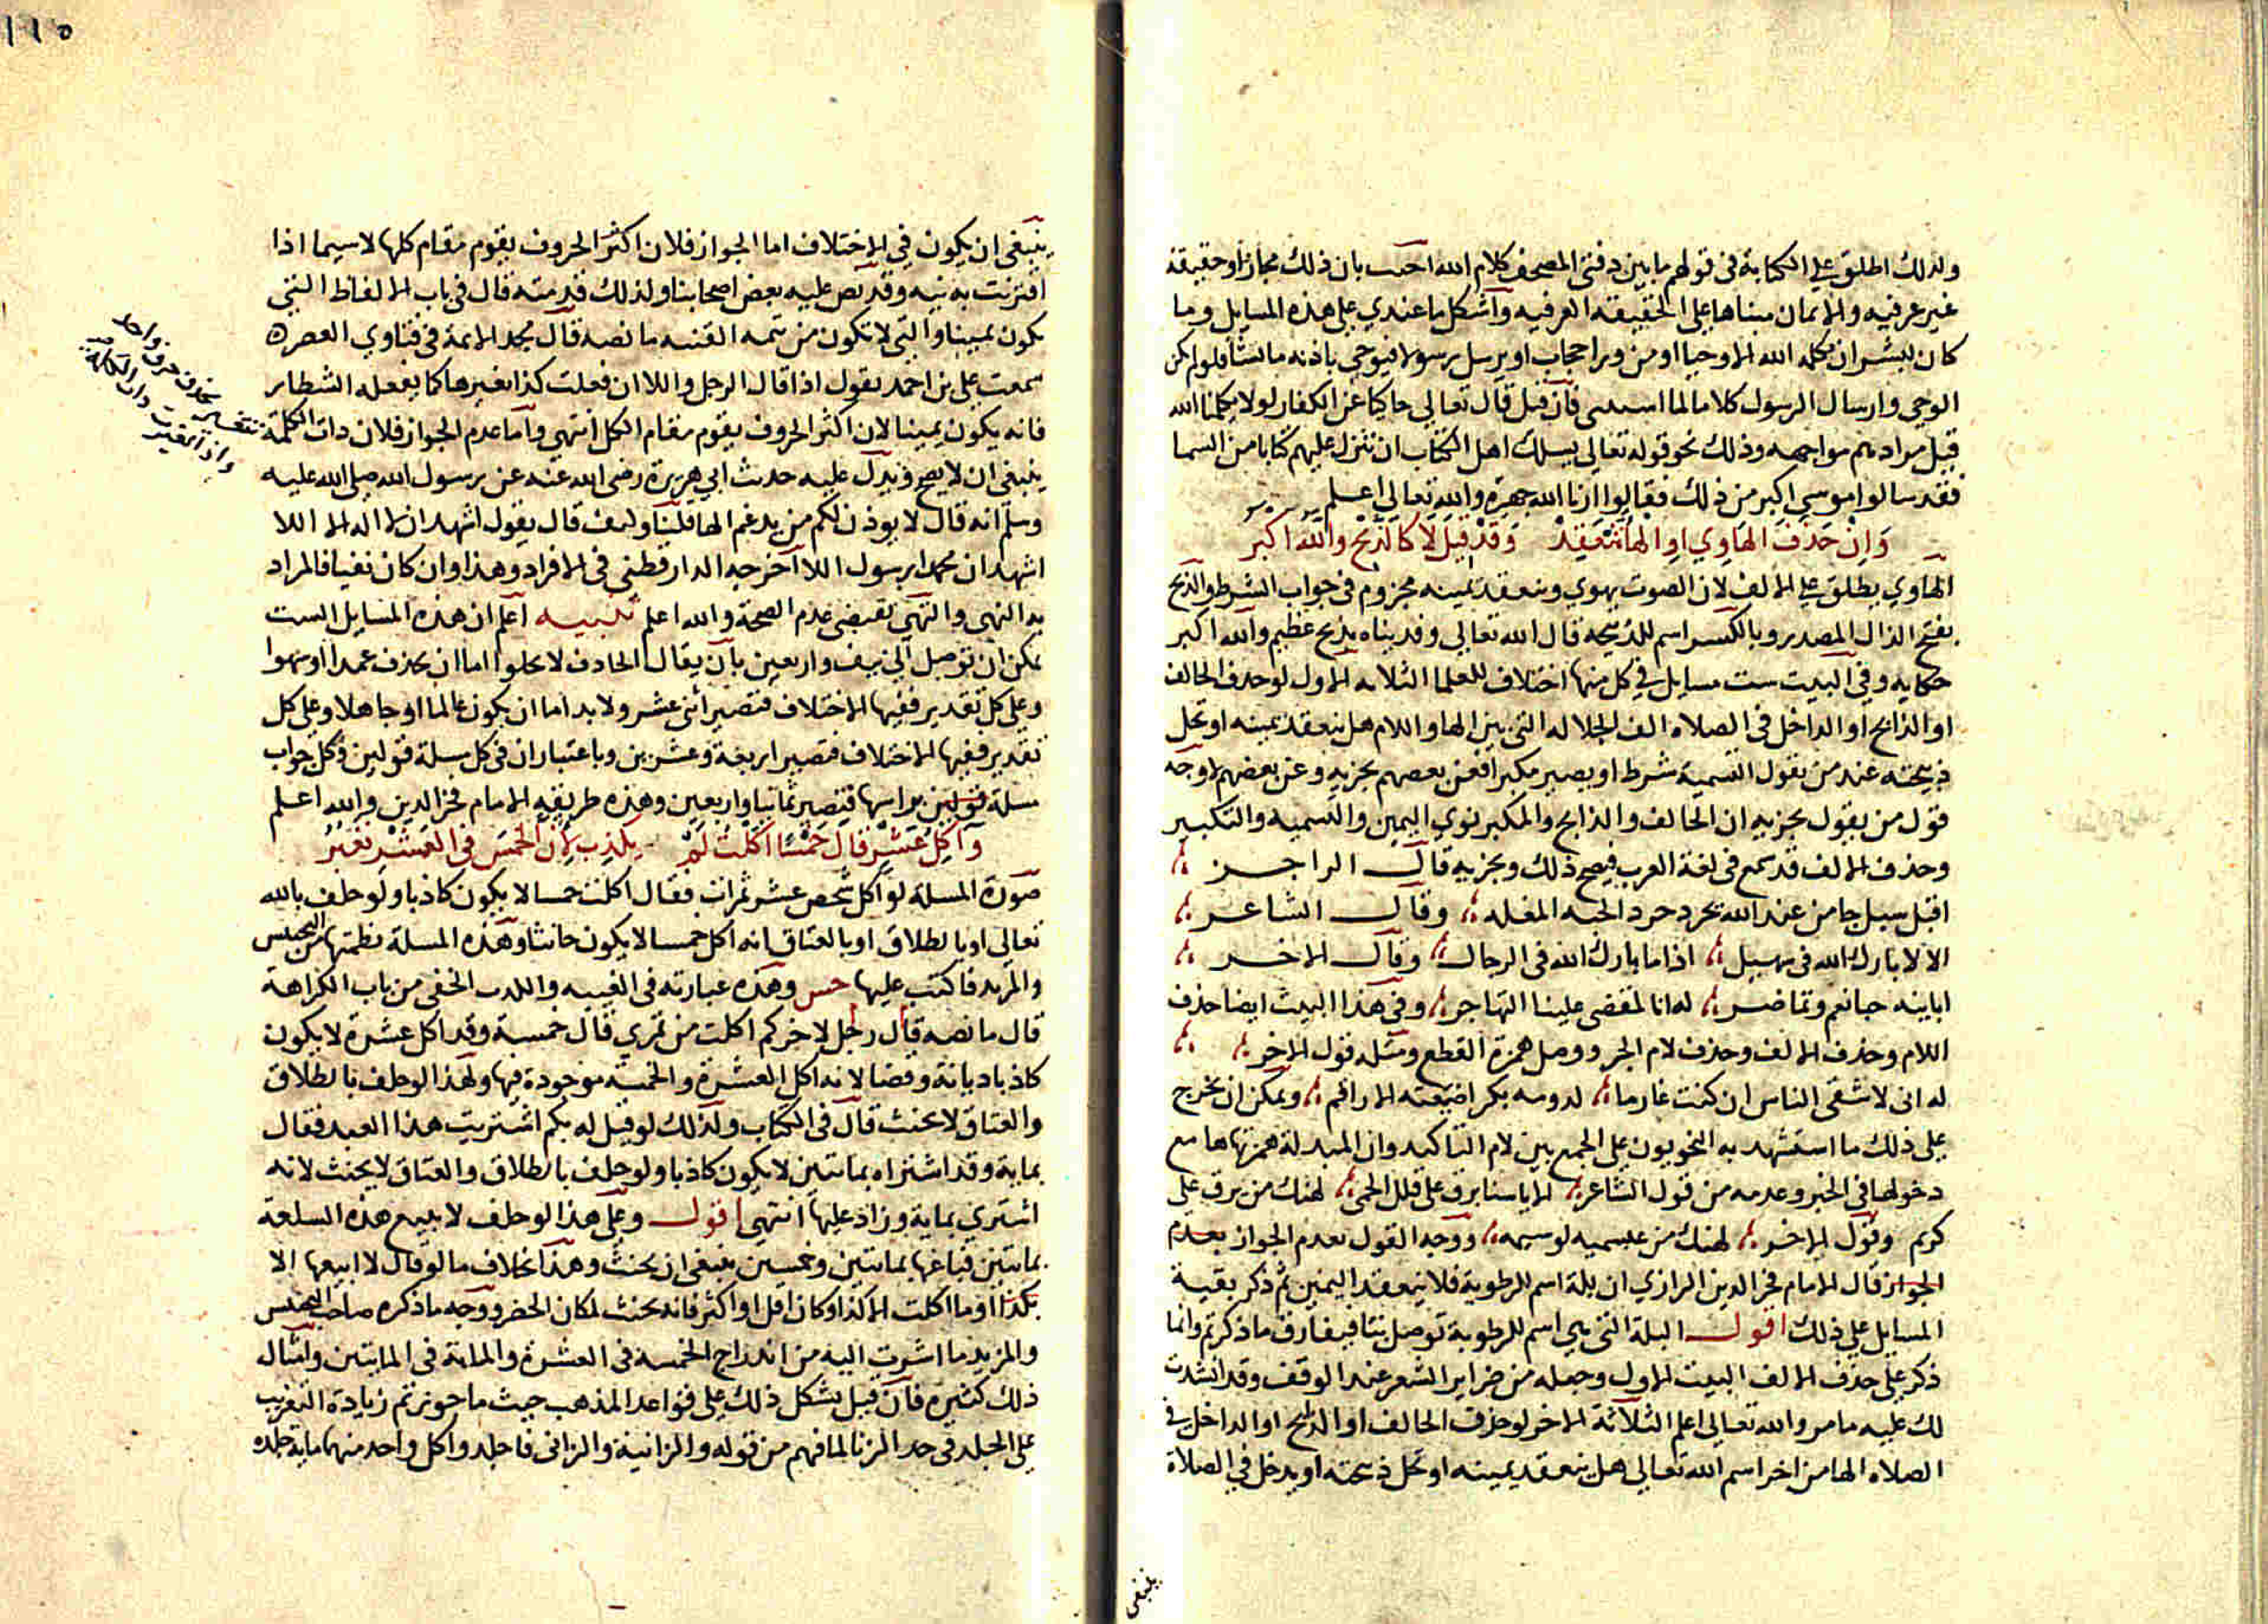 ولذلك اطلق علي الكتابة في قولهم ما بين دفتي المصحف كلام الله اجيب بان ذلك مجاز او حقيقة
غير عرفيه والايمان مبناها على الحقيقه العرفيه واشكل ما عندي على هذه المسايل وما
كان لبشر ان يكلمه الله الا وحيا او من ورا حجاب او يرسل رسولا فيوحي باذنه ما يشا فلو لم يكن
الوحي وارسال الرسول كلاما لما استثنى فان قيل قال تعالي حاكيا عن الكفار لولا يكلمنا الله
قيل مرادهم مواجهه وذلك نحو قوله تعالي يسلك اهل الكتاب ان تنزل عليهم كتابا من السما
فقد سالوا موسي اكبر من ذلك فقالوا ارنا الله جهرة والله تعالي اعلم
وَاِنْ حَذَفَ الهَاوِي اوِ الهَا تنعَقِدْ وَقَدْ قِيلَ لَا كَالذَّبْحِ واللهُ اكْبَرُ
الهاوي يطلق علي الالف لان الصوت يهوي وينعقد يمينه مجزوم في جواب الشرط والذبح
بفتح الذال المصدر وبالكسر اسم للذبيحه قال الله تعالي وفديناه بذبح عظيم والله اكبر
حكايه وفي البيت ست مسايل في كل منها اختلاف للعلما الثلاثه الاول لو حذف الحالف
او الذابح او الداخل في الصلاه الف الجلاله التي بين الها واللام هل ينعقد يمينه او تحل
ذبيحته عند من يقول التسمية شرط او يصير مكبرا فعن بعضهم يجزيه وعن بعضهم لا وجه
قول من يقول يجزيه ان الحالف والذابح والمكبر نوي اليمين والتسميه والتكبير
وحذف الالف قد سمع في لغة العرب فيصح ذلك ويجزيه قال الراجز
اقبل سيل جا من عند الله يحرد حرد الجنه المغله وقال الشاعر
الا لا بارك الله في سهيل اذا ما بارك الله في الرجال وقال الاخر
له انا لمقضى علينا التهاجر وفي هذا البيت ايضا حذف
اللام وحذف الالف وحذف لام الجر ووصل همزة القطع ومثله قول الاخر
له اني لاشقى الناس ان كنت غارما لدومه بكر اضيعته الاراقم ويمكن ان يخرج
على ذلك ما استشهد به النحويون على الجمع بين لام التاكيد وان المبدلة همزتها ها مع
دخولها في الخبر وعدمه من قول الشاعر الا يا سنا برق على قلل الحمى لهنك من برق علي
كريم وقول الاخر لهنك من عبسميه لوسيمه ووجه القول بعدم الجواز بعدم
الجواز قال الامام فخر الدين الرازي ان بلة اسم للرطوبة فلا ينعقد اليمين ثم ذكر بقية
المسايل علي ذلك اقول البلة التي هي اسم للرطوبة توصل بتا فيفارق ما ذكرتم وانما
ذكر علي حذف الالف البيت الاول وجعله من ضراير الشعر عند الوقف وقد انشدت
لك عليه ما مر والله تعالي اعلم الثلاثة الاخر لو حذف الحالف او الذابح او الداخل في
الصلاه الها من اخر اسم الله تعالي هل ينعقد يمينه او تحل ذبيحته او يدخل في الصلاة
ينبغي
١١٥
ينبغي ان يكون في الاختلاف اما الجواز فلان اكثر الحروف يقوم مقام كلها لا سيما اذا
اقترنت به نيه وقد نص عليه بعض اصحابنا ولذلك قدمته قال في باب الالفاظ التي
يكون يمينا والتي لا تكون من تتمه القنيه ما نصه قال مجد الايمة في فتاوي العصر
سمعت علي بن احمد يقول اذا قال الرجل واللا ان فعلت كذا بغير ها كما يفعله الشطار
فانه يكون يمينا لان اكثر الحروف يقوم مقام الكل انتهي واما عدم الجواز فلان ذات الكلمة
تتغير بحذف حرف واحد
واذا تغيرت ذات الكلمة
ينبغي ان لا يصح ويدل عليه حديث ابي هريرة رضي الله عنه عن رسول الله صلى الله عليه
وسلم انه قال لا يوذن لكم من يدغم الها قلنا وكيف قال يقول اشهد ان لا اله الا اللا
اشهد ان محمدا رسول اللا اخرجه الدارقطني في الافراد وهذا وان كان نفيا فالمراد
به النهي والنهي يقتضي عدم الصحة والله اعلم تنبيه اعلم ان هذه المسايل الست
يمكن ان توصل الي نيف واربعين بان يقال الحاذف لا يخلوا اما ان يحذف عمدا او سهوا
وعلي كل تقدير ففيها الاختلاف فتصير اثني عشر ولا بد اما ان يكون عالما او جاهلا وعلي كل
تقدير ففيها الاختلاف فتصير اربعة وعشرين وباعتبار ان في كل مسلة قولين وكل جواب
مسلة براسها فتصير ثمانيا واربعين وهذه طريقة الامام فخر الدين والله اعلم
وَآكِلُ عَشْرٍ قَالَ خَمْسًا اَكَلتُ لَمْ يَكْذِبْ لِاَنَّ الخَمْسَ في العَشْرِ
صورة المسلة لو اكل شخص عشر تمرات فقال اكلت خمسا لا يكون كاذبا ولو حلف بالله
تعالي او بالطلاق او بالعتاق انه اكل خمسا لا يكون حانثا وهذه المسلة نظمتها من التجنيس
والمزيد فاكتب عليها وهذه عبارته في من باب الكراهة
قال ما نصه قال رجل لاخر كم اكلت من تمري قال خمسة وقد اكل عشرة لا يكون
كاذبا ديانة وقضا لانه اكل العشرة والخمسة موجودة فيها ولهذا لو حلف بالطلاق
والعتاق لا يحنث قال في الكتاب ولذلك لو قيل له بكم اشتريت هذا العبد فقال
بماية وقد اشتراه بمايتين لا يكون كاذبا ولو حلف بالطلاق والعتاق لا يحنث لانه
اشتري بماية وزاد عليها انتهي اقول وعلي هذا لو حلف لا يبيع هذه السلعة
بمايتين فباعها بمايتين وخمسين ينبغي ان يحنث وهذا بخلاف ما لو قال لا ابيعها الا
بكذا او ما اكلت الا كذا وكان اقل او اكثر فانه يحنث لمكان الحصر ووجه ما ذكره صاحب التجنيس
والمزيد ما اشرت اليه من اندراج الخمسة في العشرة والماية في المايتين وامثال
ذلك كثيرة فان قيل يشكل ذلك علي قواعد المذهب حيث ما جوزتم زيادة التغريب
على الجلد في حد الزنا لما فهم من قوله والزانية والزاني فاجلدوا كل واحد منهما ماية جلده